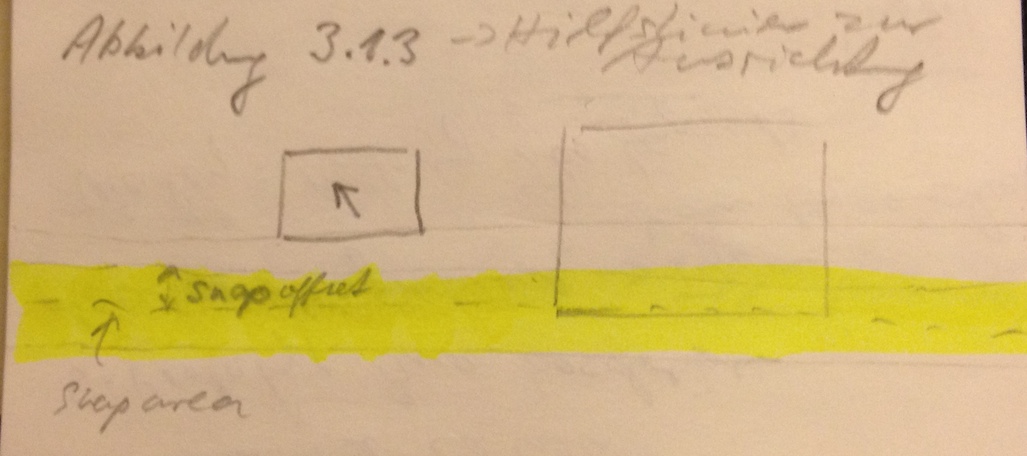 Abbildung 3.1.3 -> Hilfslinien zur
Ausrichtung
snap offset
Snap area